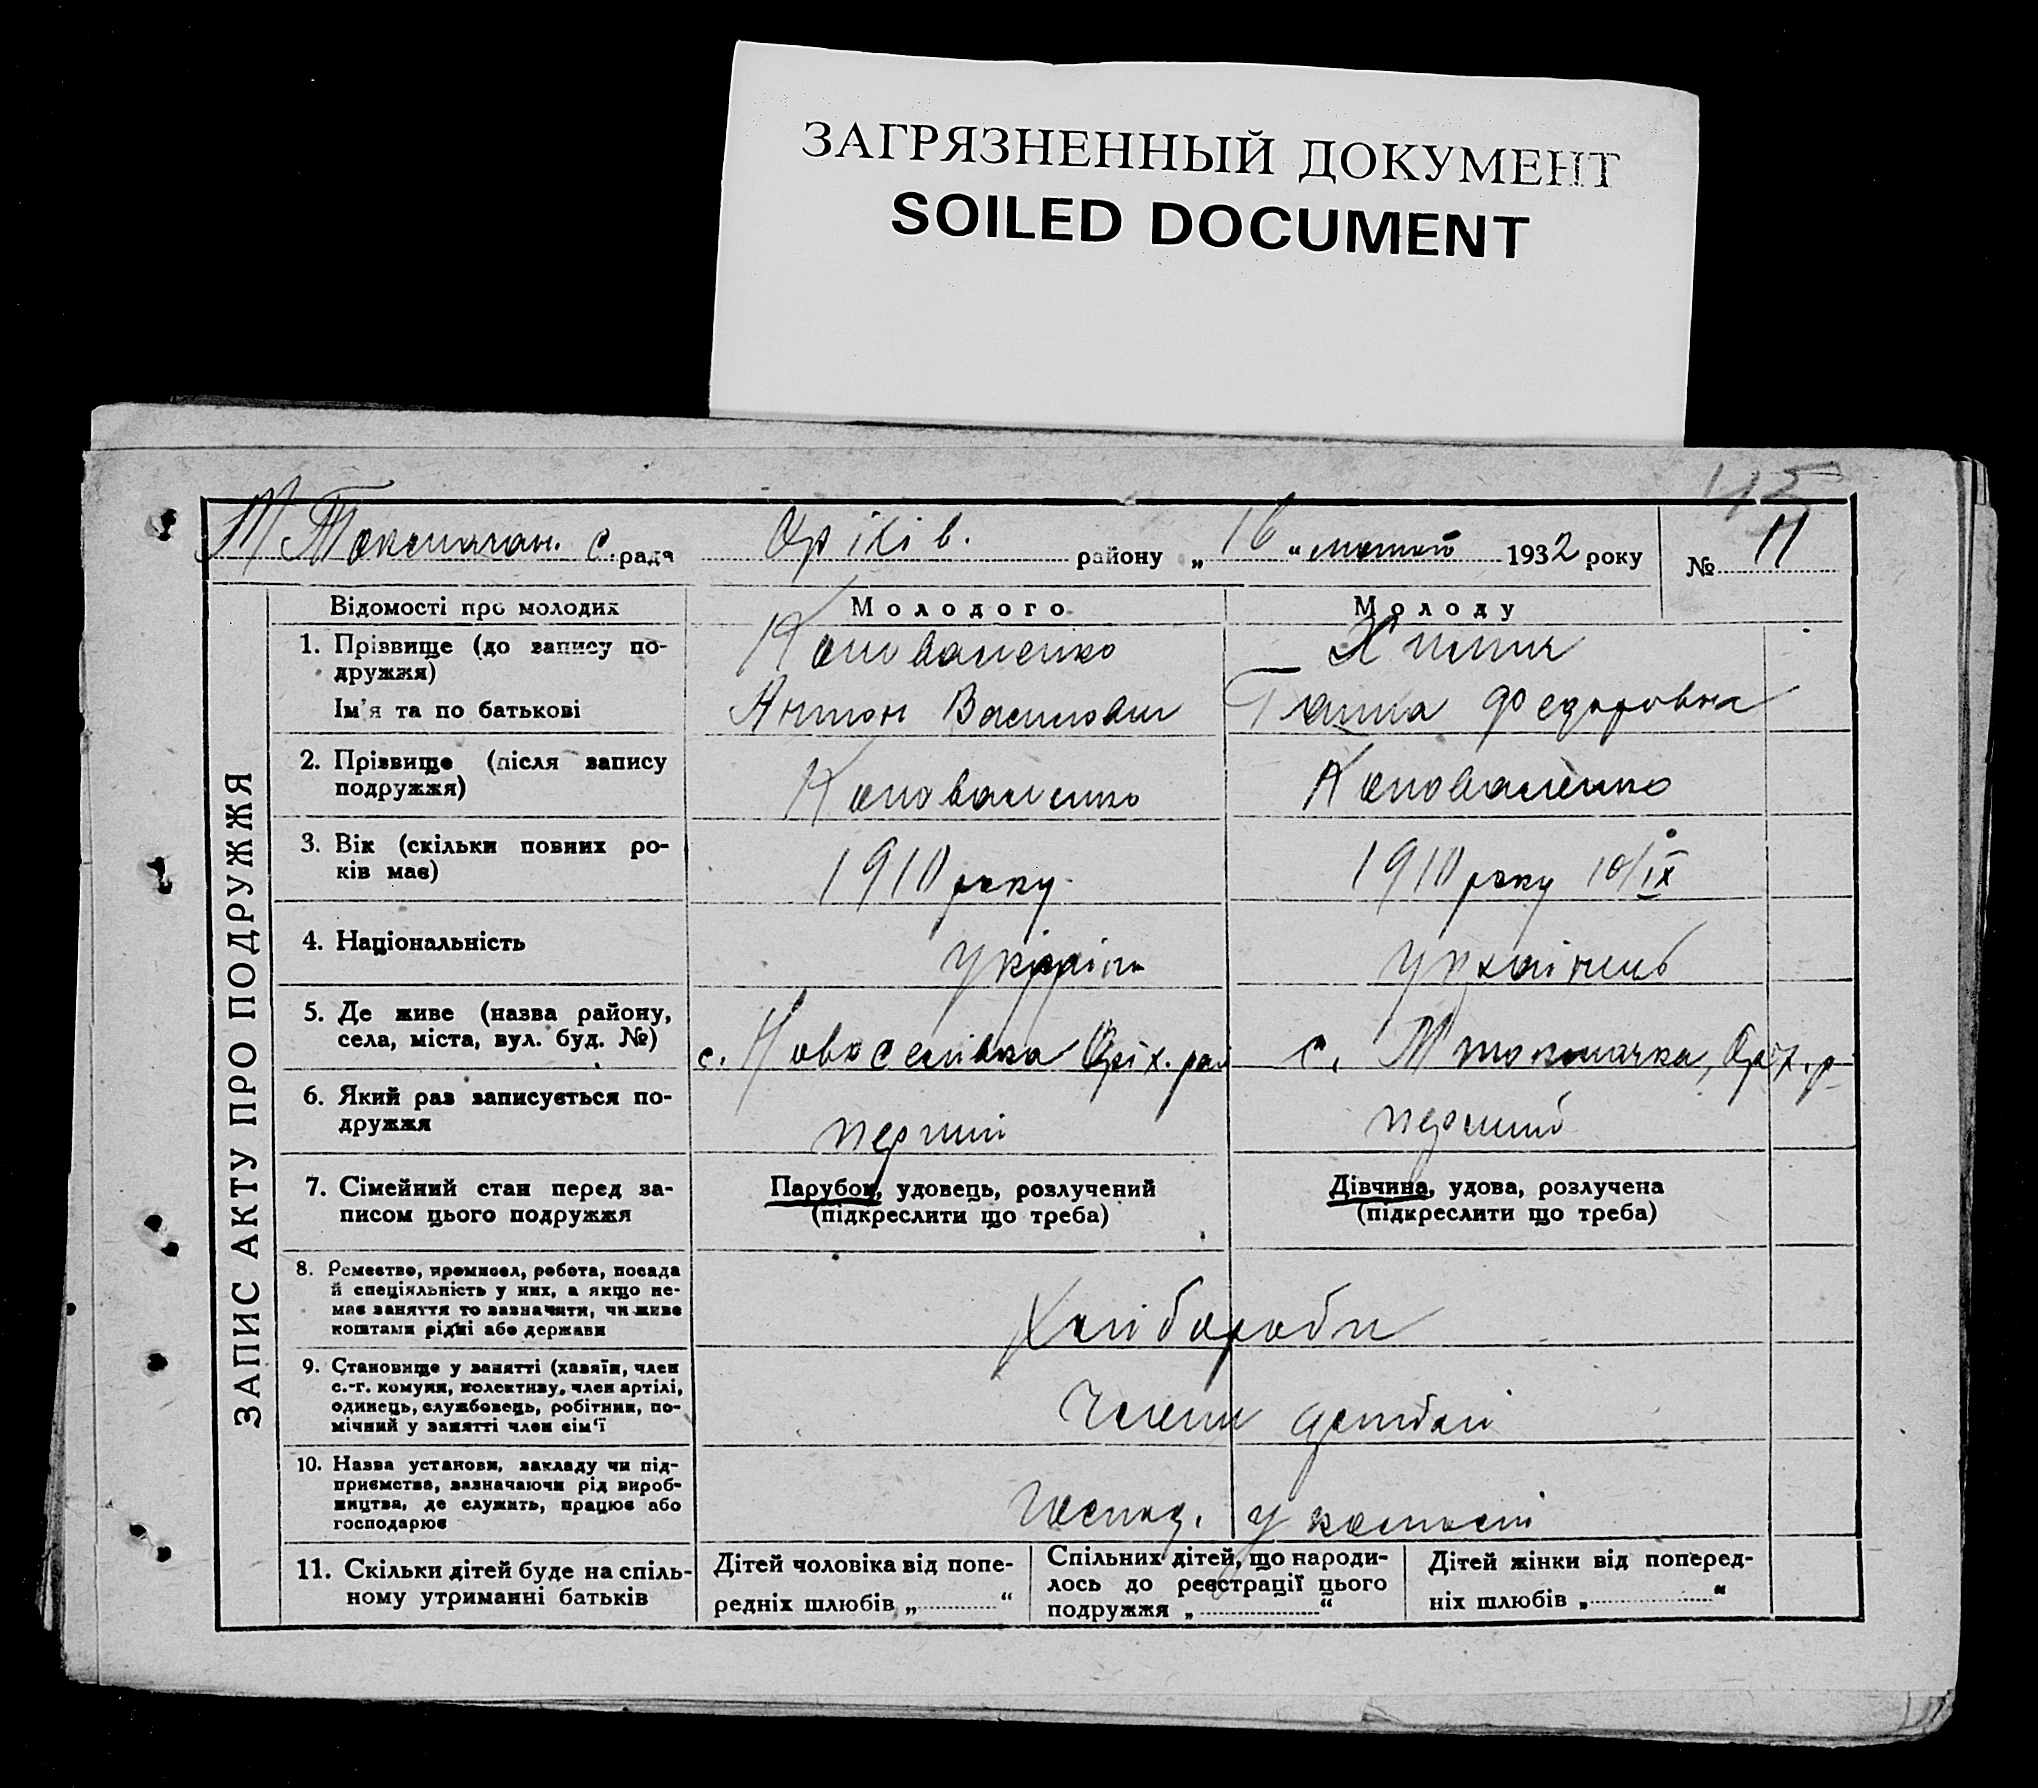 ЗАГРЯЗНЕННЫЙ ДОКУМЕНТ
SOILED DOCUMENT
М Токмачан. с. рада Оріхів. району „ 16 “ лютого 1932 року № 11
ЗАПИС АКТУ ПРО ПОДРУЖЖЯ
Відомості про молодих Молодого Молоду
1. Прізвище (до запису по-
дружжя) Коноваленко
Ім'я та по батькові Антон Василович Ганна Федоровна
2. Прізвище (після запису
подружжя) Коноваленко Коноваленко
3. Вік (скільки повних ро-
ків має) 1910 року. 1910 року 10/IX
4. Національність україн українець
5. Де живе (назва району,
села, міста, вул. буд. №) с. Новоселівка Оріх. рай с. М токмачка, Оріх. р
6. Який раз записується по-
дружжя перший перший
7. Сімейний стан перед за-
писом цього подружжя
Парубок, удовець, розлучений
(підкреслити що треба)
Дівчина, удова, розлучена
(підкреслити що треба)
8. Ремество, промисел, робота, посада
й спеціяльність у них, а якщо не-
має заняття то зазначити, чи живе
коштами рідні або держави
Хлібороби
9. Становище у занятті (хазяїн, член
с.-г. комуни, колективу, член артілі,
одинець, службовець, робітник, по-
мічний у занятті член сім'ї
Члени
10. Назва установи, закладу чи під-
приємства, зазначаючи рід вироб-
ництва, де служить, працює або
господарює
Господ. у
11. Скільки дітей буде на спіль-
ному утриманні батьків
Дітей чоловіка від попе-
редніх шлюбів „ “
Спільних дітей, що народи-
лось до реєстрації цього
подружжя „ “
Дітей жінки від поперед-
ніх шлюбів „ “